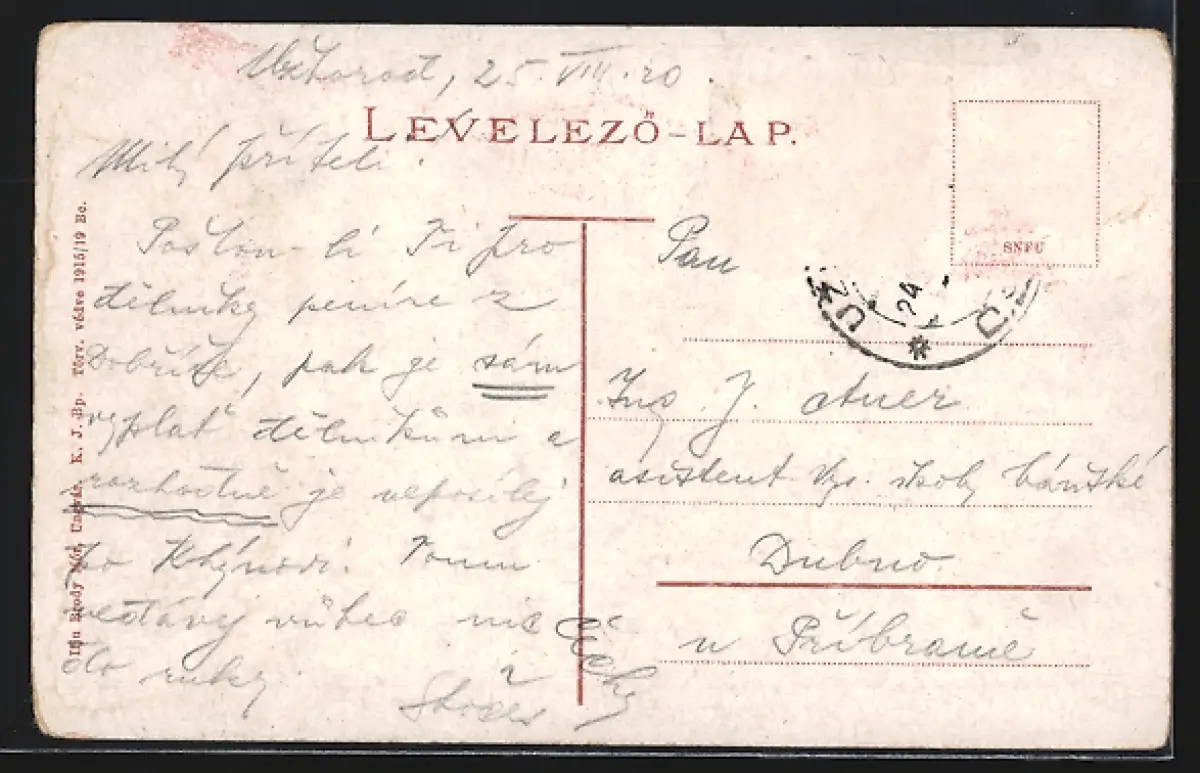 Užhorod, 25. VIII. 20.
LEVELEZŐ-LAP.
Milý příteli.
Pošlou-li Ti pro
dělníky peníze z
Dobříše, pak je sám
vyplať dělníkům a
rozhodně je neposílej
po
Tomu
nedávej vůbec nic
do ruky.
Pan
Ing. J. Auer
asistent Vys. školy báňské
Dubno
u Příbramě
SNFU
UŽ
24
Ifju Brody Mór, Ungvár. K. J. Bp. Törv. védve 1915/19 Bc.